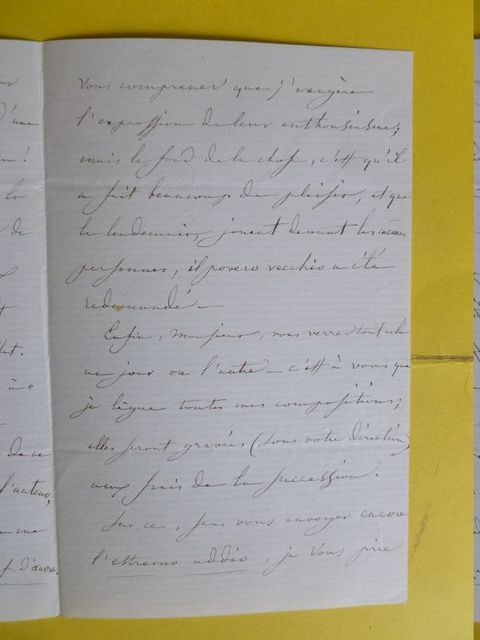 vous comprenez que j'exagère
l'expression de leur enthousiasme;
mais le fond de la chose, c'est qu'il
a fait beaucoup de plaisir, et que
le lendemain, jouant devant les mêmes
personnes, il povero vecchio a été
redemandé.
Enfin, Monsieur, vous verrez tout cela
un jour ou l'autre — c'est à vous que
je lègue toutes mes compositions;
elles seront gravées (sous votre direction)
aux frais de la succession.
Sur ce, sans vous envoyer encore
l'estremo addio, je vous prie
d'une
la
de
l'auteur,
une
f. d'œuvre.